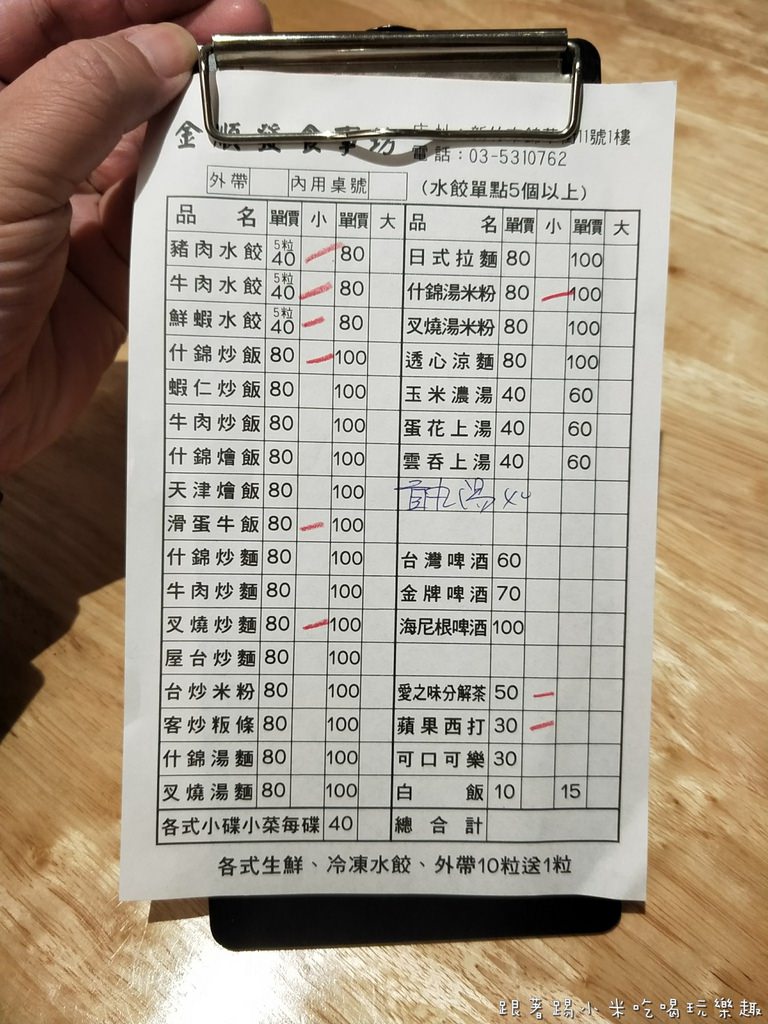 金順發食事坊 店址：新竹市錦華街11號1樓
電話：03-5310762
外帶 內用桌號 (水餃單點5個以上)
品名 單價 小 單價 大 品名 單價 小 單價 大
豬肉水餃 5粒 40 80 日式拉麵 80 100
牛肉水餃 5粒 40 80 什錦湯米粉 80 100
鮮蝦水餃 5粒 40 80 叉燒湯米粉 80 100
什錦炒飯 80 100 透心涼麵 80 100
蝦仁炒飯 80 100 玉米濃湯 40 60
牛肉炒飯 80 100 蛋花上湯 40 60
什錦燴飯 80 100 雲吞上湯 40 60
天津燴飯 80 100 湯 40
滑蛋牛飯 80 100
什錦炒麵 80 100 台灣啤酒 60
牛肉炒麵 80 100 金牌啤酒 70
叉燒炒麵 80 100 海尼根啤酒 100
屋台炒麵 80 100
台炒米粉 80 100 愛之味分解茶 50
客炒粄條 80 100 蘋果西打 30
什錦湯麵 80 100 可口可樂 30
叉燒湯麵 80 100 白飯 10 15
各式小碟小菜每碟 40 總合計
各式生鮮、冷凍水餃、外帶10粒送1粒
跟著踢小米吃喝玩樂趣